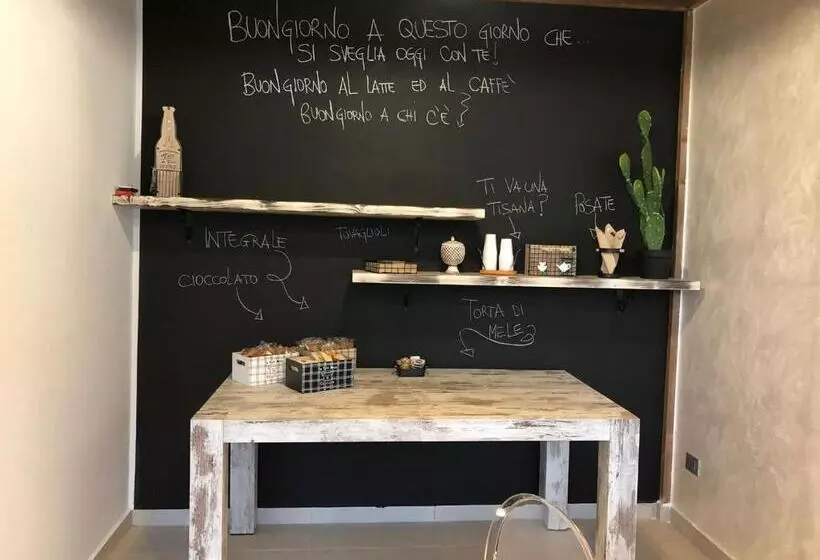 BUONGIORNO A QUESTO GIORNO CHE...
SI SVEGLIA OGGI CON TE!
BUONGIORNO AL LATTE ED AL CAFFÈ
BUONGIORNO A CHI C'È
TI VA UNA
TISANA?
POSATE
TOVAGLIOLI
INTEGRALE
CIOCCOLATO
TORTA DI
MELE